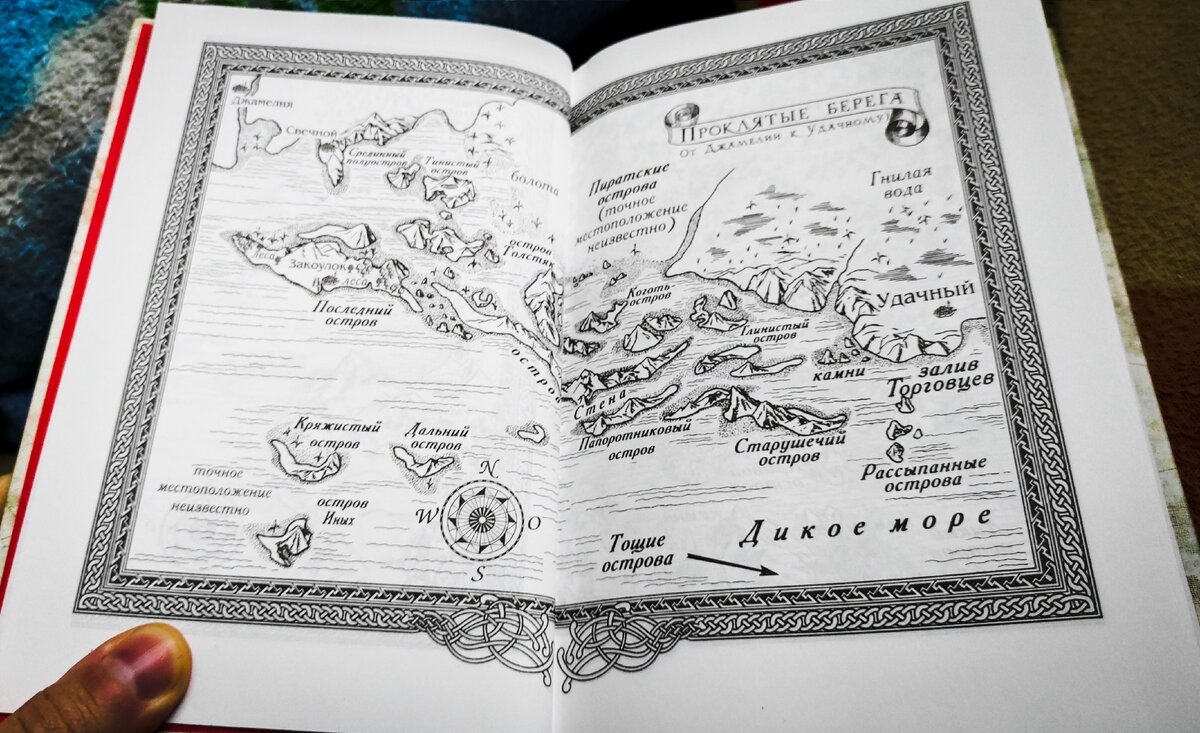 Джамелия
Свечной
Срединный
полуостров
Тинистый
остров
болота
остров
Толстяк
лес
Закоулок
лес
Последний
остров
остров
Стена
Кряжистый
остров
Дальний
остров
точное
местоположение
неизвестно
остров
Иных
N
W
O
S
Проклятые берега
От Джамелии к Удачному
Пиратские
острова
(точное
местоположение
неизвестно)
Гнилая
вода
Коготь-
остров
Удачный
Глинистый
остров
камни
залив
Торговцев
Папоротниковый
остров
Старушечий
остров
Рассыпанные
острова
Дикое море
Тощие
острова